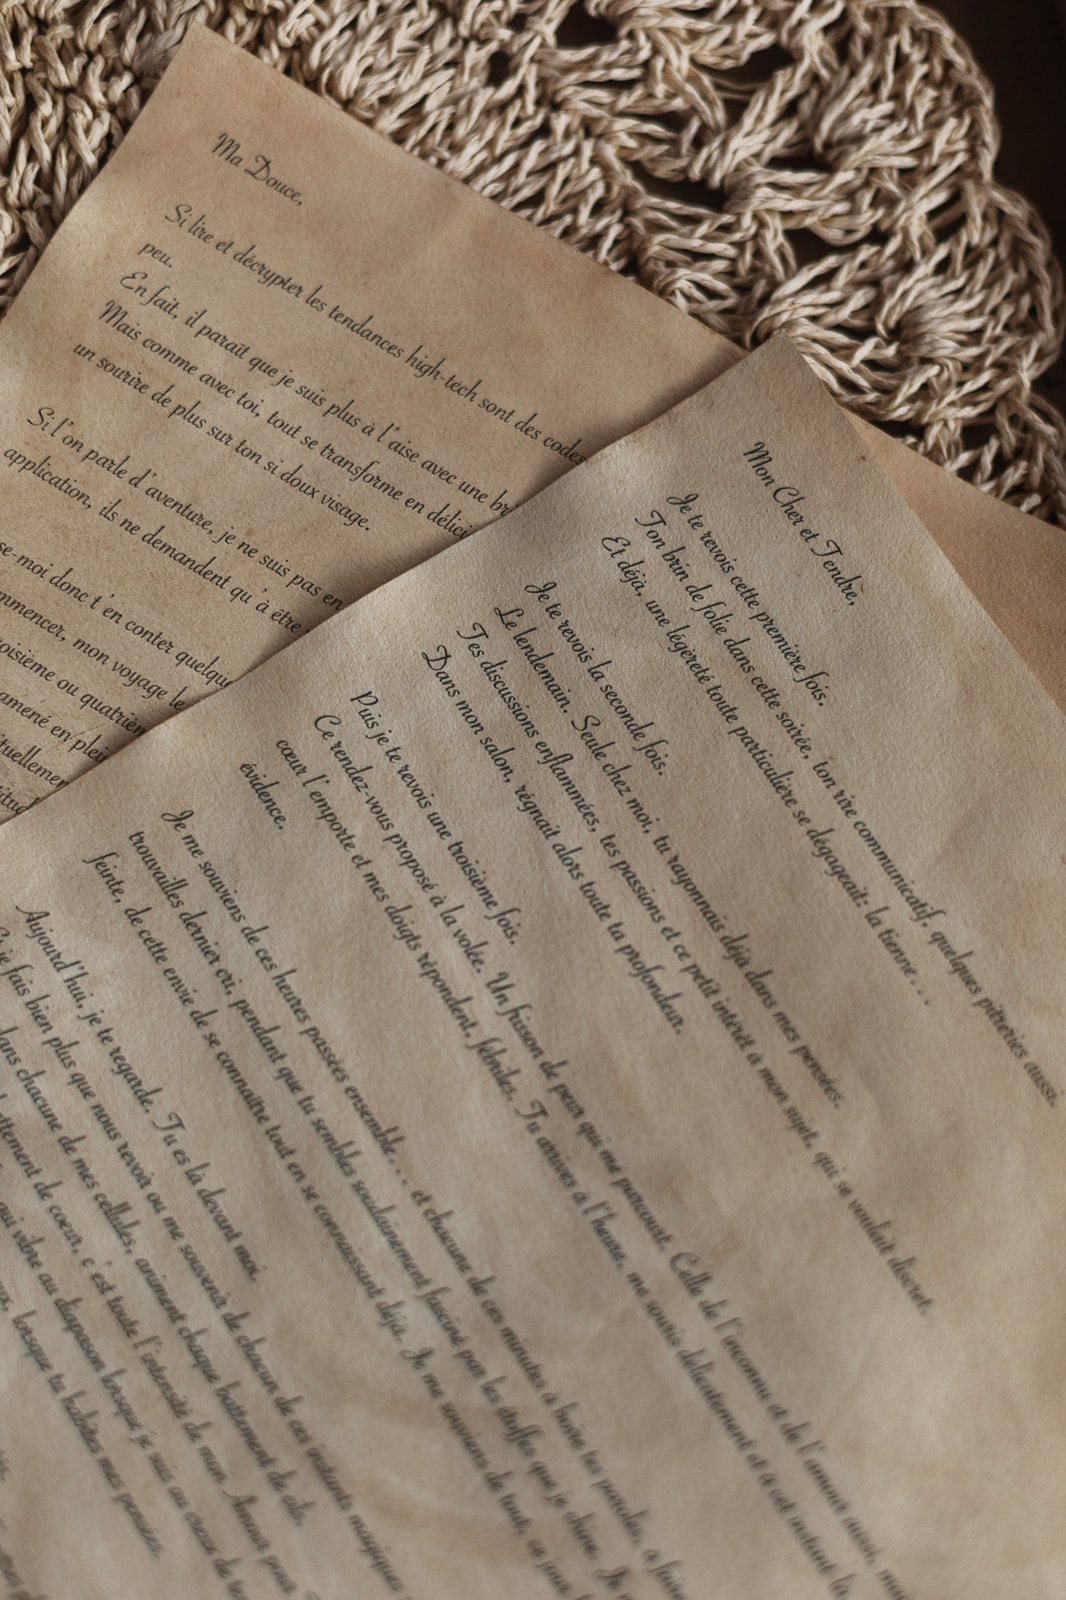 Ma Douce,
Si lire et décrypter les tendances high-tech sont des codes
peu.
En fait, il paraît que je suis plus à l'aise avec une
Mais comme avec toi, tout se transforme en
un sourire de plus sur ton si doux visage.
Si l'on parle d'aventure, je ne suis pas en
application, ils ne demandent qu'à être
-moi donc t'en conter
mon voyage le
ou
en
Mon Cher et Tendre,
Je te revois cette première fois.
Ton brin de folie dans cette soirée, ton rire communicatif, quelques pitreries aussi.
Et déjà, une légèreté toute particulière se dégageait: la tienne...
Je te revois la seconde fois.
Le lendemain. Seule chez moi, tu rayonnais déjà dans mes pensées.
Tes discussions enflammées, tes passions et ce petit intérêt à mon sujet, qui se voulait discret.
Dans mon salon, régnait alors toute ta profondeur.
Puis je te revois une troisième fois.
Ce rendez-vous proposé à la volée. Un frisson de peur qui me parcourt. Celle de l'inconnu et de l'amour aussi,
cœur l'emporte et mes doigts répondent, fébriles. Tu arrives à l'heure, me souris délicatement et à cet instant
évidence.
Je me souviens de ces heures passées ensemble... et chacune de ces minutes à boire tes paroles, à
trouvailles dernier cri, pendant que tu sembles soudainement fasciné par les étoffes que je chine. Je
feinte, de cette envie de se connaître tout en se connaissant déjà. Je me souviens de tout, ce
Aujourd'hui, je te regarde. Tu es là devant moi.
je fais bien plus que nous revoir ou me souvenir de chacun de ces instants magiques
dans chacune de mes cellules, animent chaque battement de cils.
battement de coeur, c'est toute l'intensité de mon Amour pour
qui vibre au diapason lorsque je suis au creux de
lorsque tu habites mes pensées.